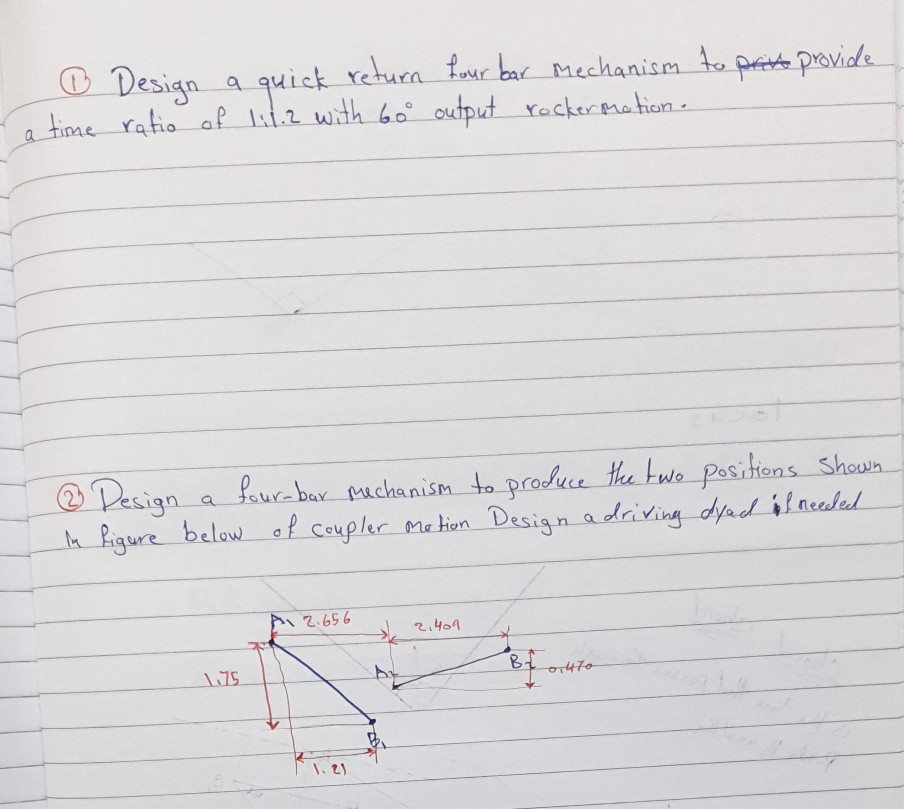 ① Design a quick return four bar mechanism to provide
a time ratio of 1:1.2 with 60° output rocker motion.
② Design a four-bar mechanism to produce the two positions shown
in figure below of coupler motion Design a driving dyad if needed
A1 2.656 2.409
1.75 A2 B2 0.470
B1
1.21